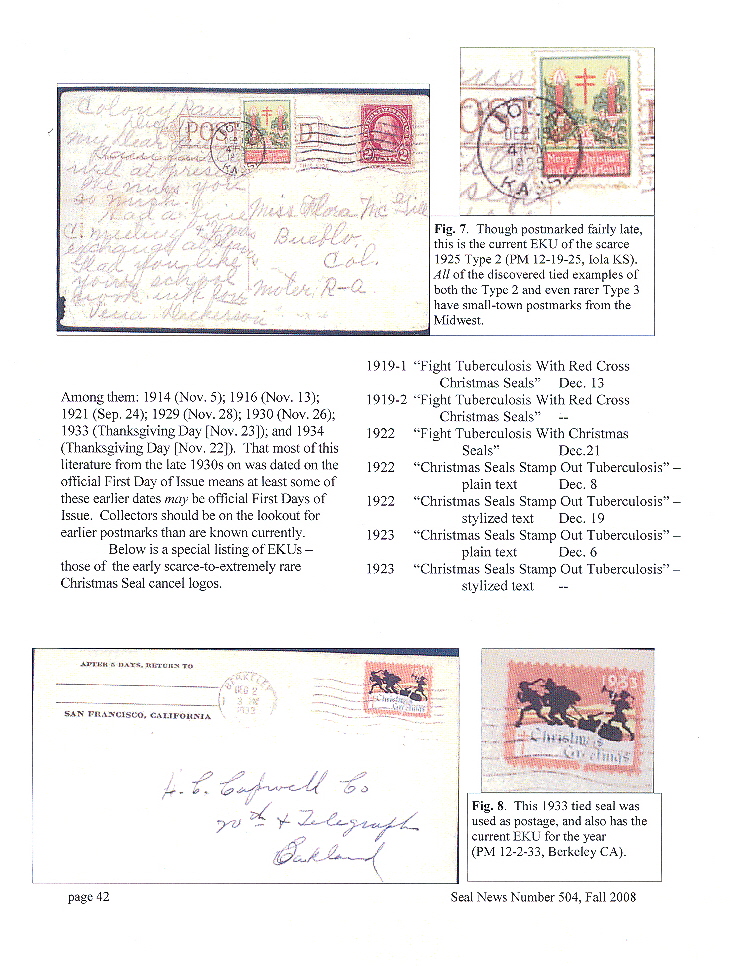 Colony Kans
My dear
will at pres
One miss you
so much.
Had a fine
exchange
Glad you like
your school
work
POS
D
IOLA
KANS.
2
Miss Flora Mc Gill
Pueblo,
Col.
Motor, R-A.
IOLA
DEC 19
4 PM
1925
KANS
Merry Christmas
and Good Health
Fig. 7.  Though postmarked fairly late,
this is the current EKU of the scarce
1925 Type 2 (PM 12-19-25, Iola KS).
All of the discovered tied examples of
both the Type 2 and even rarer Type 3
have small-town postmarks from the
Midwest.
Among them: 1914 (Nov. 5); 1916 (Nov. 13);
1921 (Sep. 24); 1929 (Nov. 28); 1930 (Nov. 26);
1933 (Thanksgiving Day [Nov. 23]); and 1934
(Thanksgiving Day [Nov. 22]).  That most of this
literature from the late 1930s on was dated on the
official First Day of Issue means at least some of
these earlier dates may be official First Days of
Issue.  Collectors should be on the lookout for
earlier postmarks than are known currently.
Below is a special listing of EKUs –
those of the early scarce-to-extremely rare
Christmas Seal cancel logos.
1919-1 “Fight Tuberculosis With Red Cross
Christmas Seals” Dec. 13
1919-2 “Fight Tuberculosis With Red Cross
Christmas Seals” --
1922 “Fight Tuberculosis With Christmas
Seals” Dec.21
1922 “Christmas Seals Stamp Out Tuberculosis” –
plain text Dec. 8
1922 “Christmas Seals Stamp Out Tuberculosis” –
stylized text Dec. 19
1923 “Christmas Seals Stamp Out Tuberculosis” –
plain text Dec. 6
1923 “Christmas Seals Stamp Out Tuberculosis” –
stylized text --
AFTER 5 DAYS, RETURN TO
SAN FRANCISCO, CALIFORNIA
BERKELEY
DEC 2
3 PM
1933
Christmas
Greetings
H. C. Capwell Co
20th & Telegraph
Oakland
1933
Christmas
Greetings
Fig. 8.  This 1933 tied seal was
used as postage, and also has the
current EKU for the year
(PM 12-2-33, Berkeley CA).
page 42
Seal News Number 504, Fall 2008